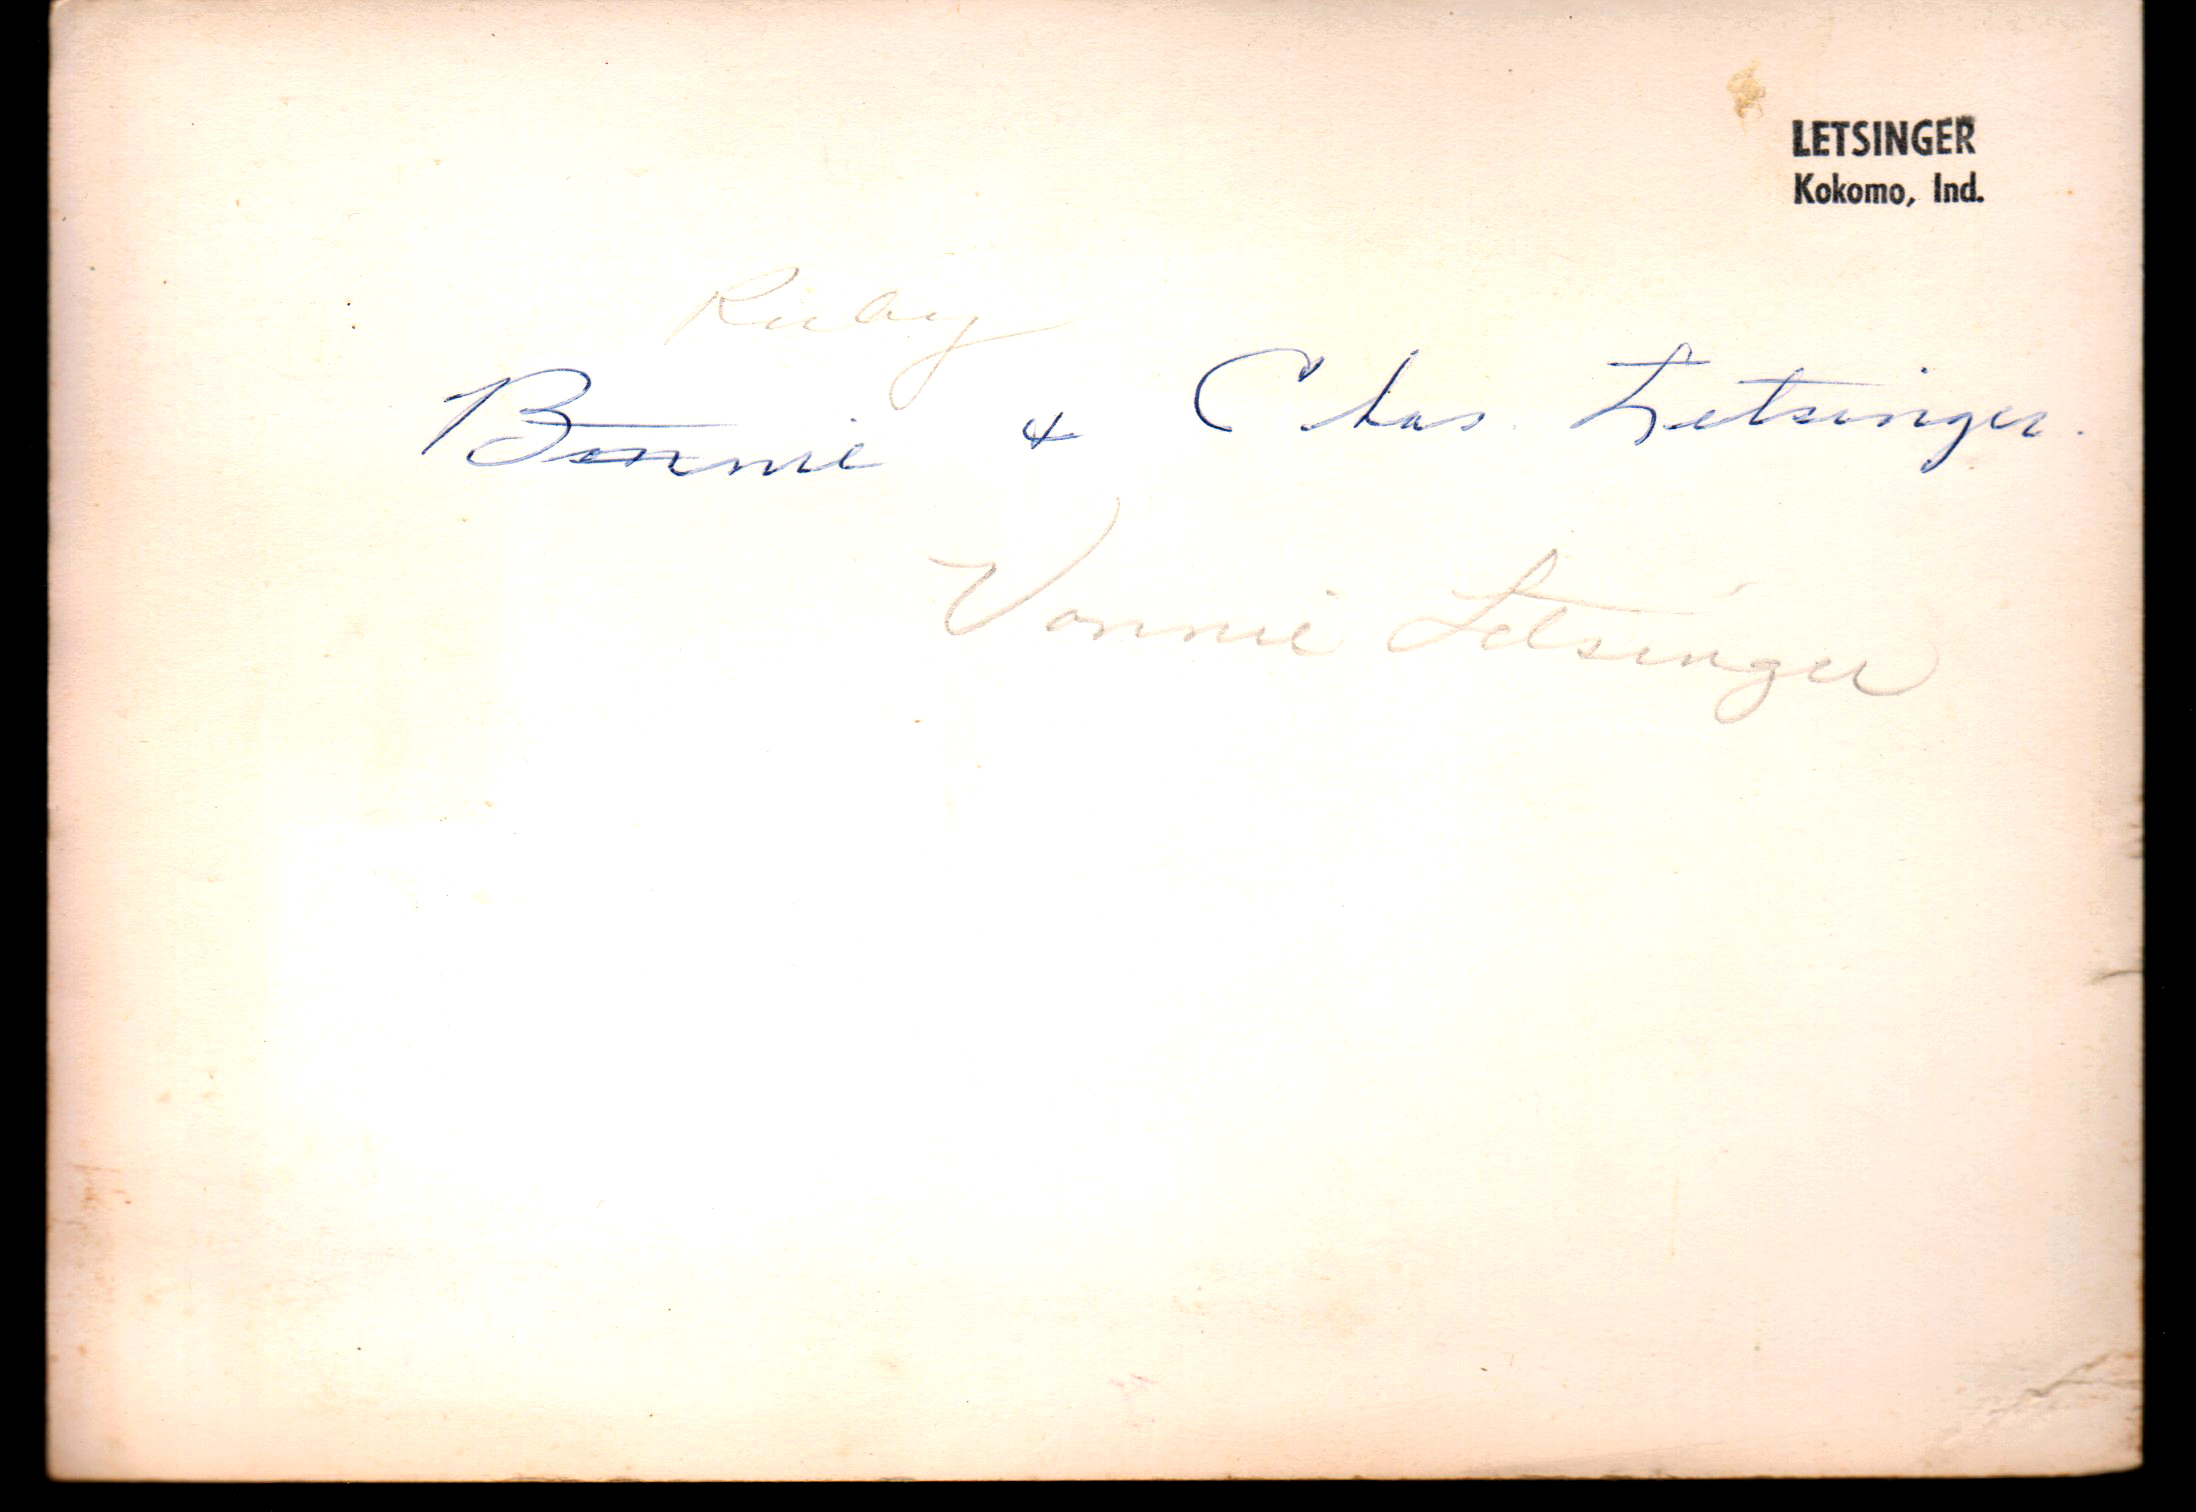 LETSINGER
Kokomo, Ind.
Ruby
Bonnie & Chas. Letsinger.
Vonnie Letsinger